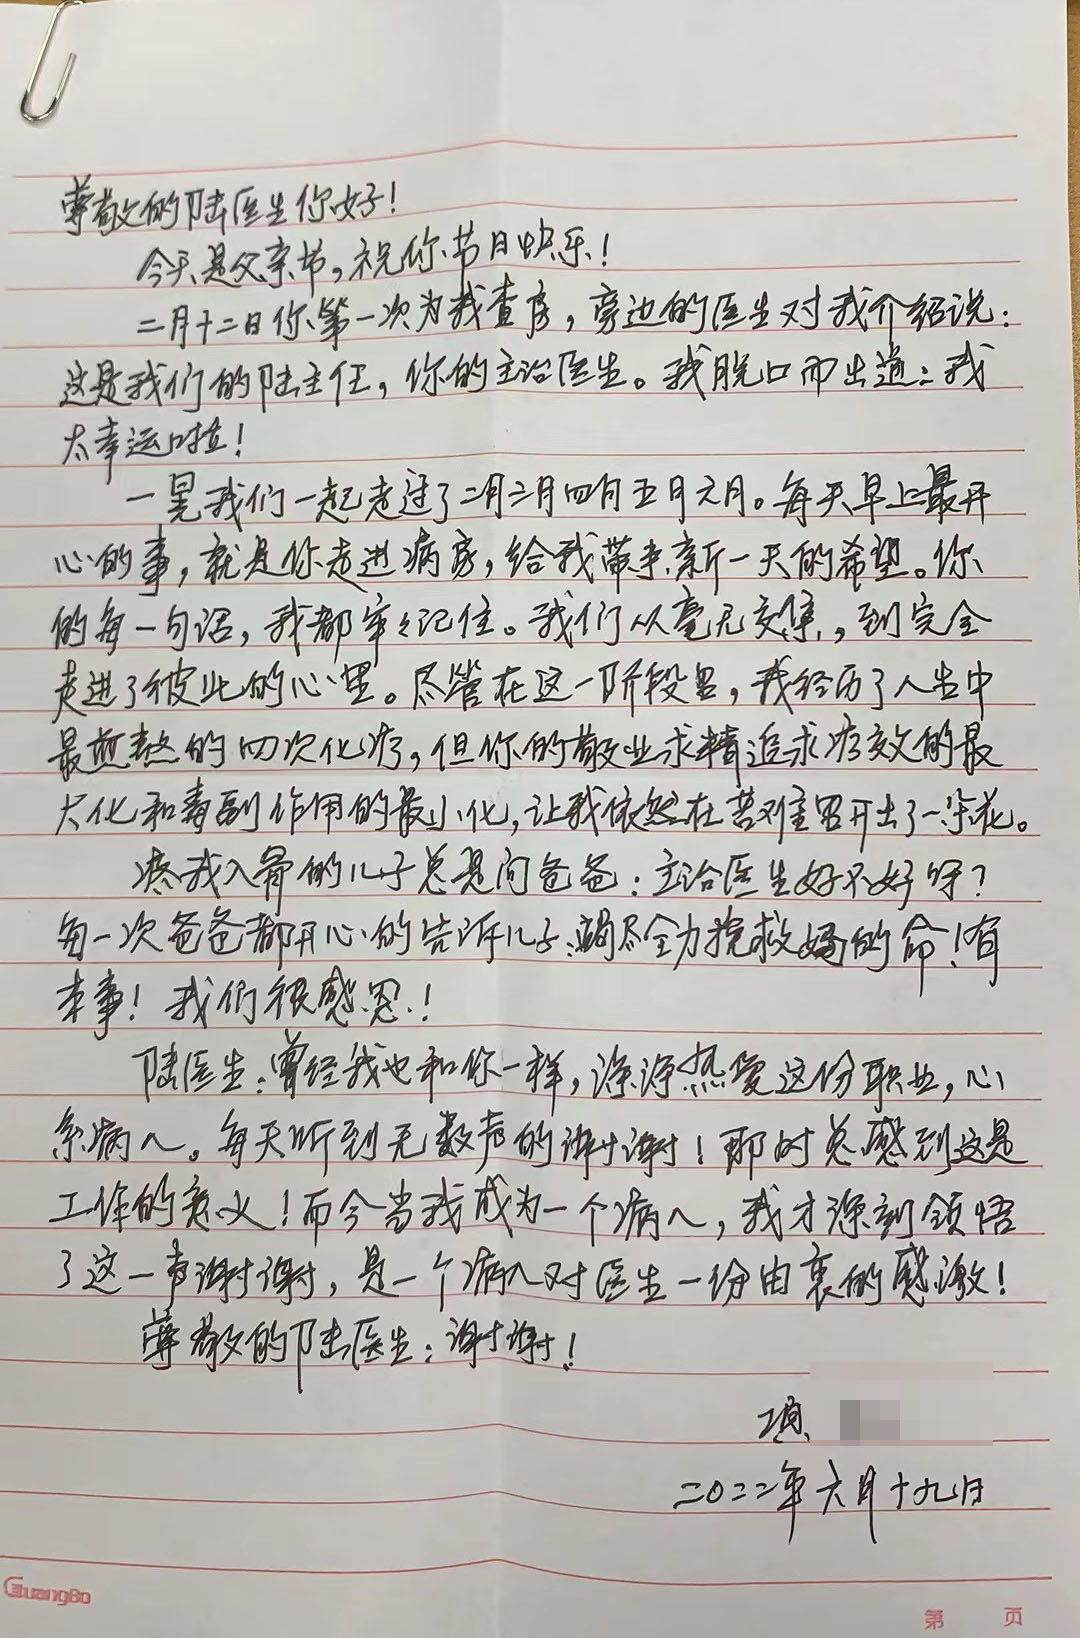 尊敬的陆医生你好!
今天是父亲节,祝你节日快乐!
二月十二日你第一次为我查房,旁边的医生对我介绍说:
这是我们的陆主任,你的主治医生。我脱口而出道:我
太幸运啦!
一晃我们一起走过了二月三月四月五月六月。每天早上最开
心的事,就是你走进病房,给我带来新一天的希望。你
的每一句话,我都牢々记住。我们从毫无交集,到完全
走进了彼此的心里。尽管在这一阶段里,我经历了人生中
最煎熬的四次化疗,但你的敬业求精追求疗效的最
大化和毒副作用的最小化,让我依然在苦难里开出了一朵花。
疼我入骨的儿子总是问爸爸:主治医生好不好呀?
每一次爸爸都开心的告诉儿子:竭尽全力挽救妈的命!有
本事!我们很感恩!
陆医生:曾经我也和你一样,深深热爱这份职业,心
系病人。每天听到无数声的谢谢!那时总感到这是
工作的意义!而今当我成为一个病人,我才深刻领悟
了这一声谢谢,是一个病人对医生一份由衷的感激!
尊敬的陆医生:谢谢!
项
二〇二二年六月十九日
GuangBo
第 页